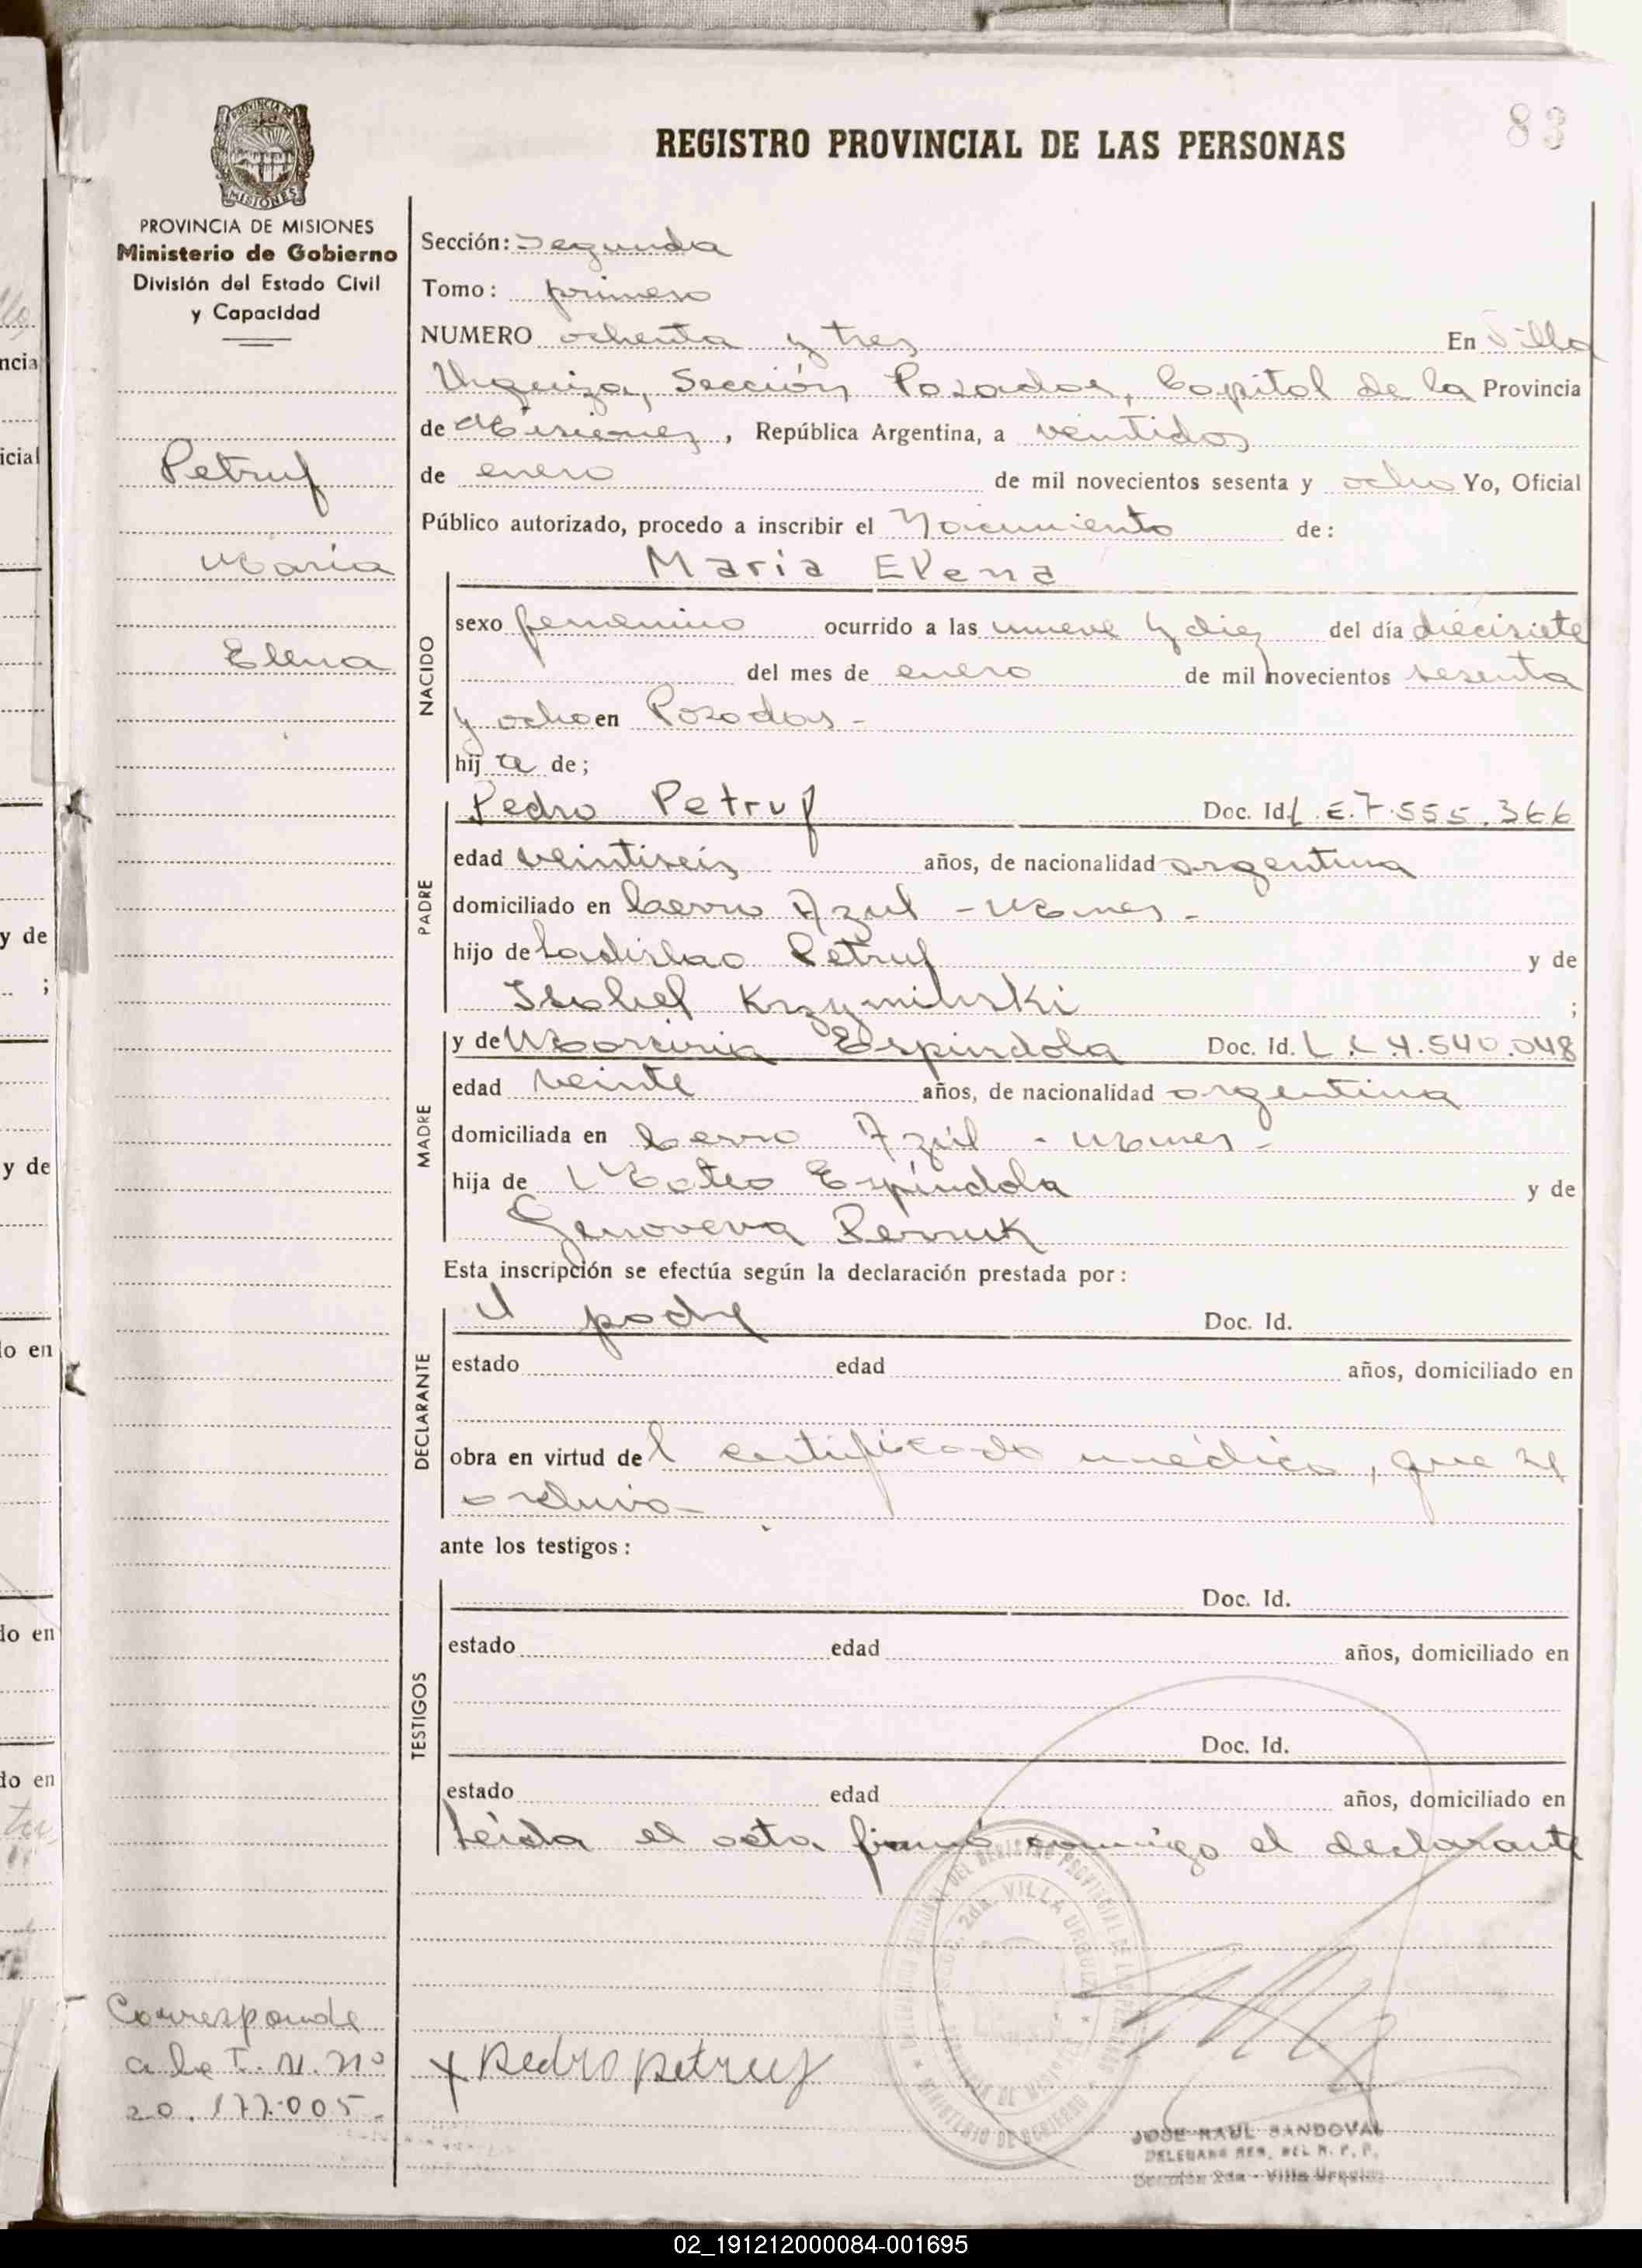 83
REGISTRO PROVINCIAL DE LAS PERSONAS
PROVINCIA DE
MISIONES
PROVINCIA DE MISIONES
Ministerio de Gobierno
División del Estado Civil
y Capacidad
Petruf
María
Elena
Sección: Segunda
Tomo: primero
NUMERO ochenta y tres En Villa
Urquiza, Sección Posadas, Capital de la Provincia
de Misiones, República Argentina, a ventidos
de enero de mil novecientos sesenta y ocho Yo, Oficial
Público autorizado, procedo a inscribir el Nacimiento de:
María Elena
NACIDO
sexo femenino ocurrido a las nueve y diez del día diecisiete
del mes de enero de mil novecientos sesenta
y ocho en Posadas -
hij a de;
PADRE
Pedro Petruf Doc. Id. L.E.7.555.366
edad veintiseis años, de nacionalidad argentina
domiciliado en Cerro Azul - Mnes -
hijo de Ladislao Petruf y de
Isabel Krzyminski ;
MADRE
y de Espindola Doc. Id. L.C 4.540.048
edad veinte años, de nacionalidad argentina
domiciliada en Cerro Azúl - Mnes -
hija de Mateo Espíndola y de
Genoveva
Esta inscripción se efectúa según la declaración prestada por:
DECLARANTE
el padre Doc. Id.
estado edad años, domiciliado en
obra en virtud del certificado médico, que se
archiva -
ante los testigos:
TESTIGOS
Doc. Id.
estado edad años, domiciliado en
Doc. Id.
estado edad años, domiciliado en
Leída el acta firmó conmigo el declarante
Corresponde
a la T. N. Nº
20.177.005 -
x Pedro petruf
2da. VILLA URQUIZA
MINISTERIO DE GOBIERNO
JOSE RAUL SANDOVAL
DEL R. P. P.
Sección 2da - Villa Urquiza
02_191212000084-001695